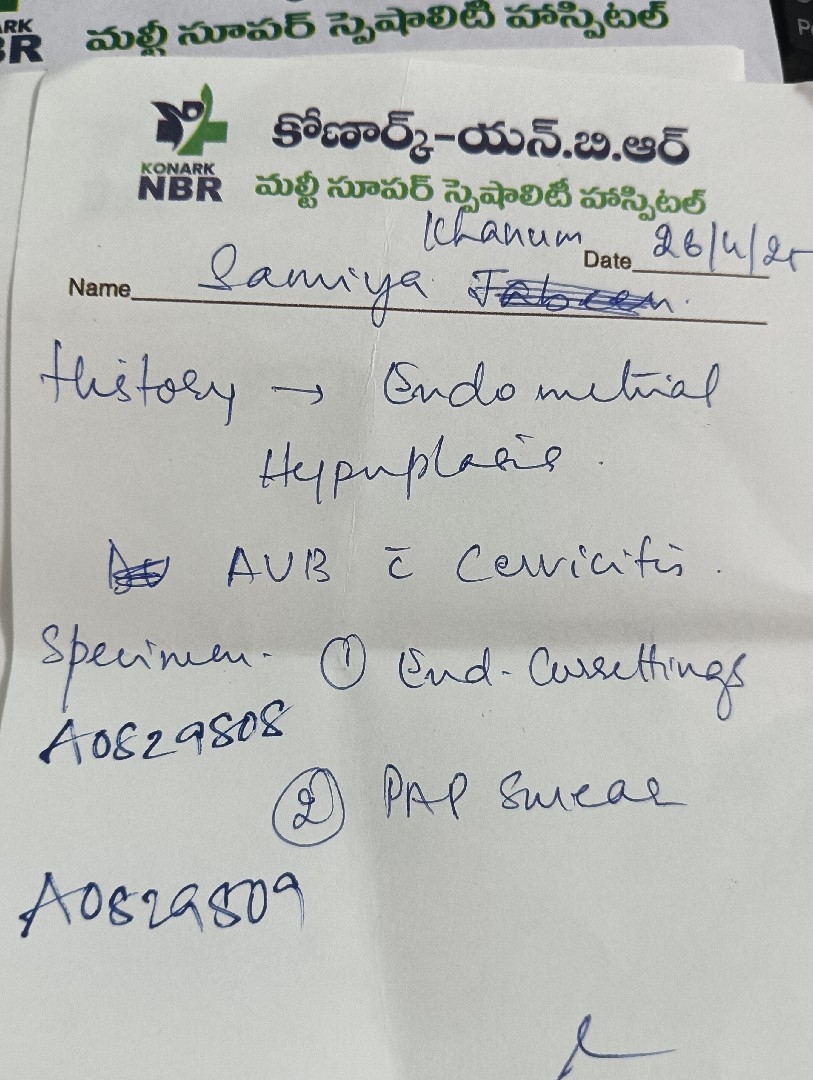 ARK
BR
మల్టీ సూపర్ స్పెషాలిటీ హాస్పిటల్
KONARK
NBR
కోణార్క్-యన్.బి.ఆర్
మల్టీ సూపర్ స్పెషాలిటీ హాస్పిటల్
Khanum
Name Samiya
Date 26/4/25
History → Endometrial
Hyperplasia.
AUB c̄ Cervicitis.
Specimen- ① End-Curettings
A0829808
② PAP Smear
A0829809